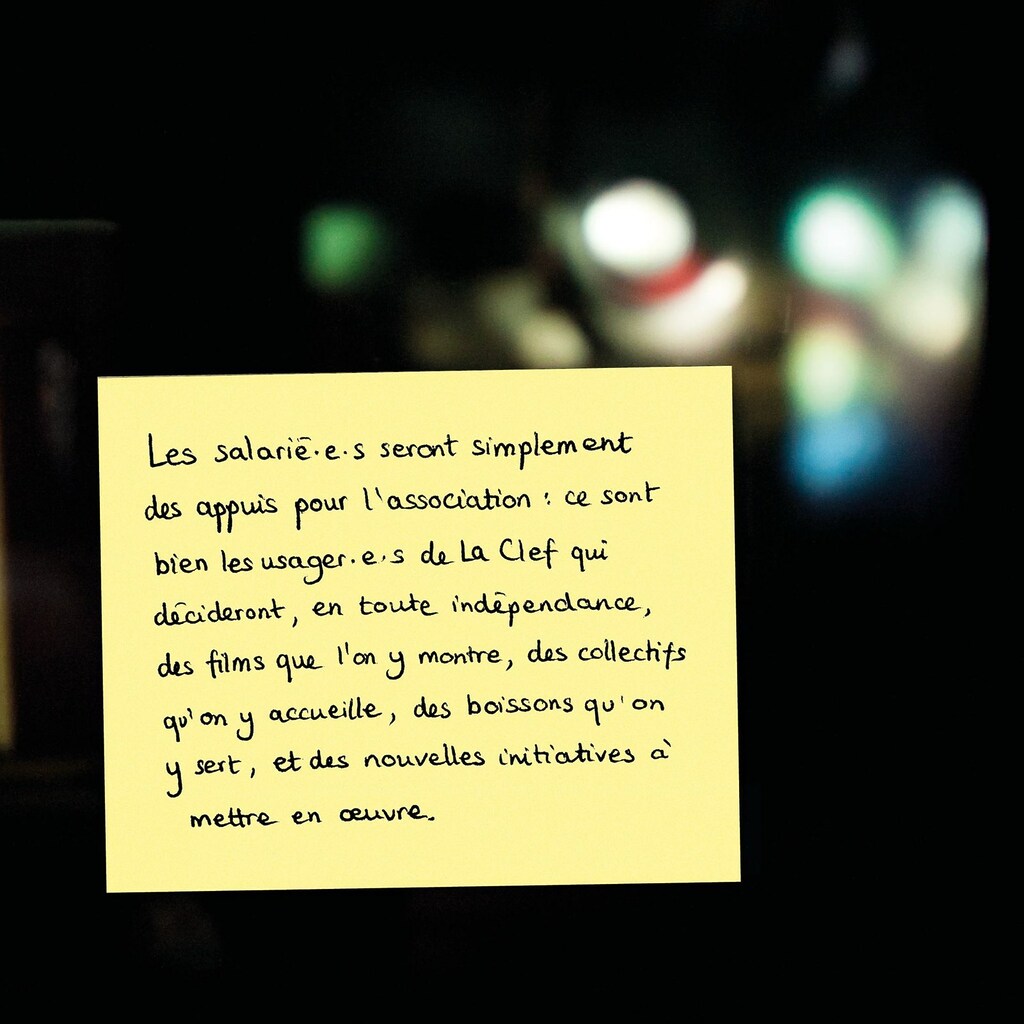 Les salarié·e·s seront simplement
des appuis pour l'association : ce sont
bien les usager·e·s de La Clef qui
décideront, en toute indépendance,
des films que l'on y montre, des collectifs
qu'on y accueille, des boissons qu'on
y sert, et des nouvelles initiatives à
mettre en œuvre.